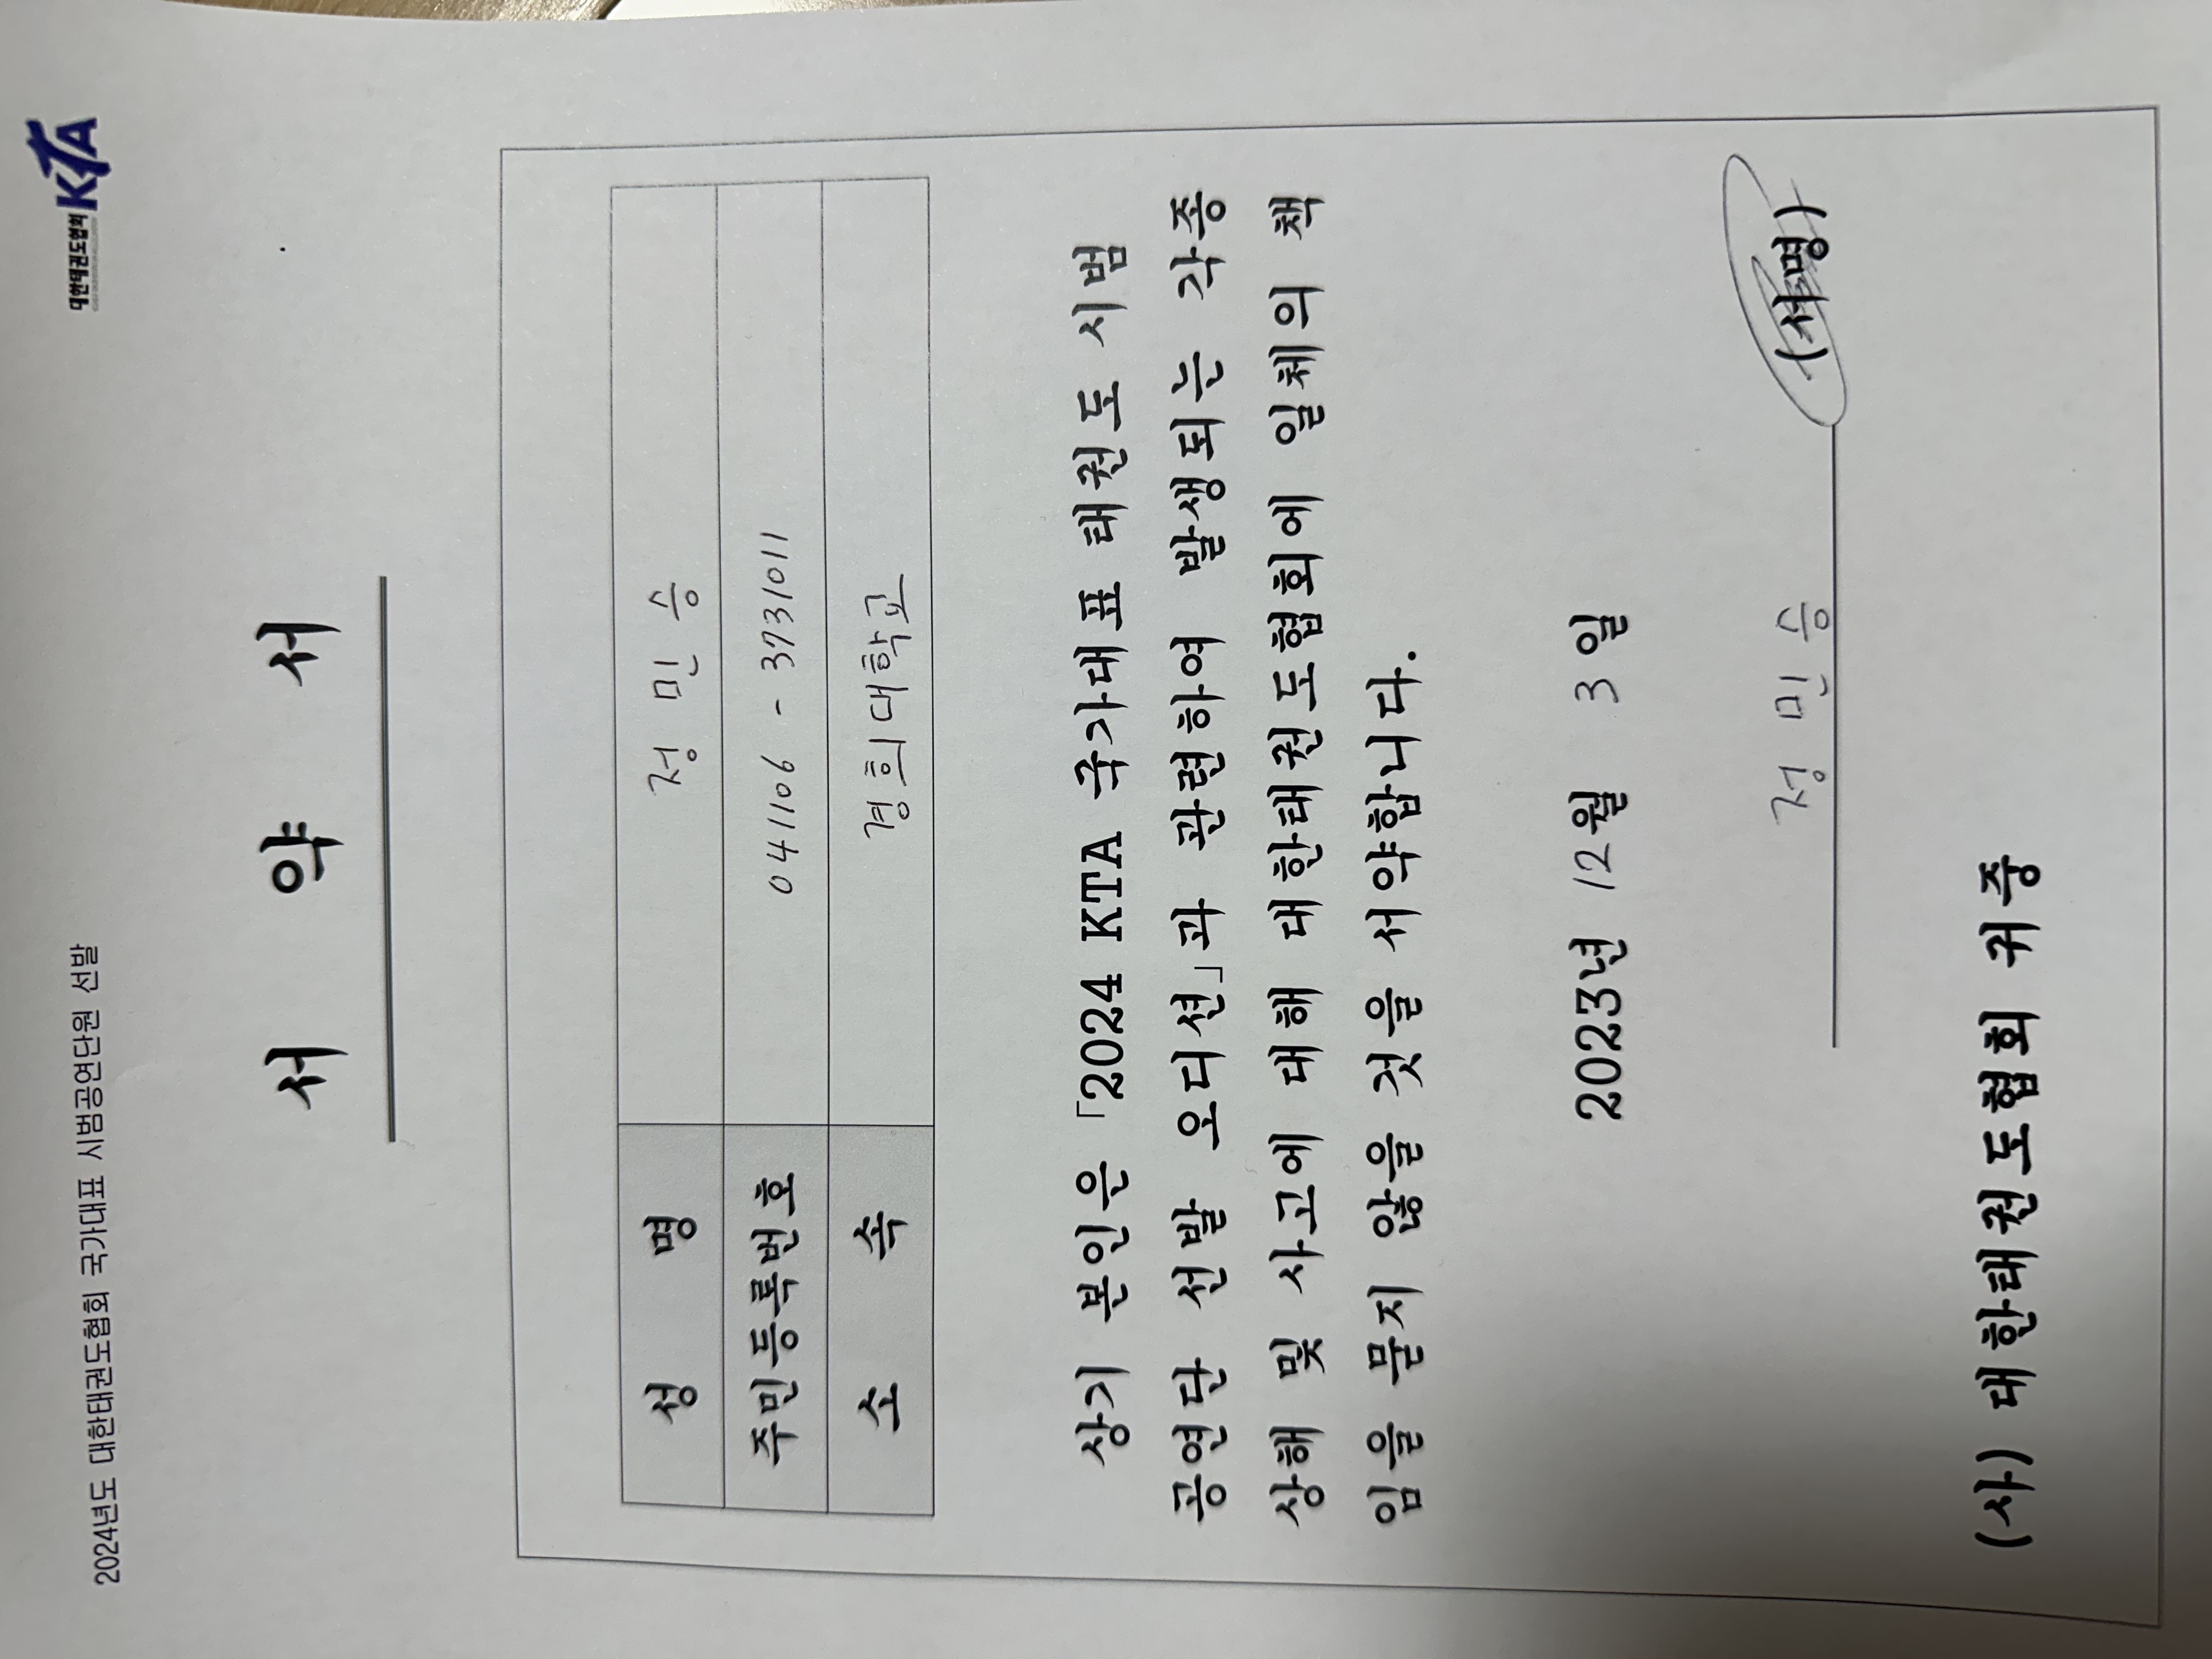 2024년도 대한태권도협회 국가대표 시범공연단원 선발
대한태권도협회 KTA
서 약 서
성 명 정 민 승
주민등록번호 041106 - 3731011
소 속 경희대학교
상기 본인은 「2024 KTA 국가대표 태권도 시범
공연단 선발 오디션」과 관련하여 발생되는 각종
상해 및 사고에 대해 대한태권도협회에 일체의 책
임을 묻지 않을 것을 서약합니다.
2023년 12월 3일
정 민 승 (서명)
(사) 대한태권도협회 귀중